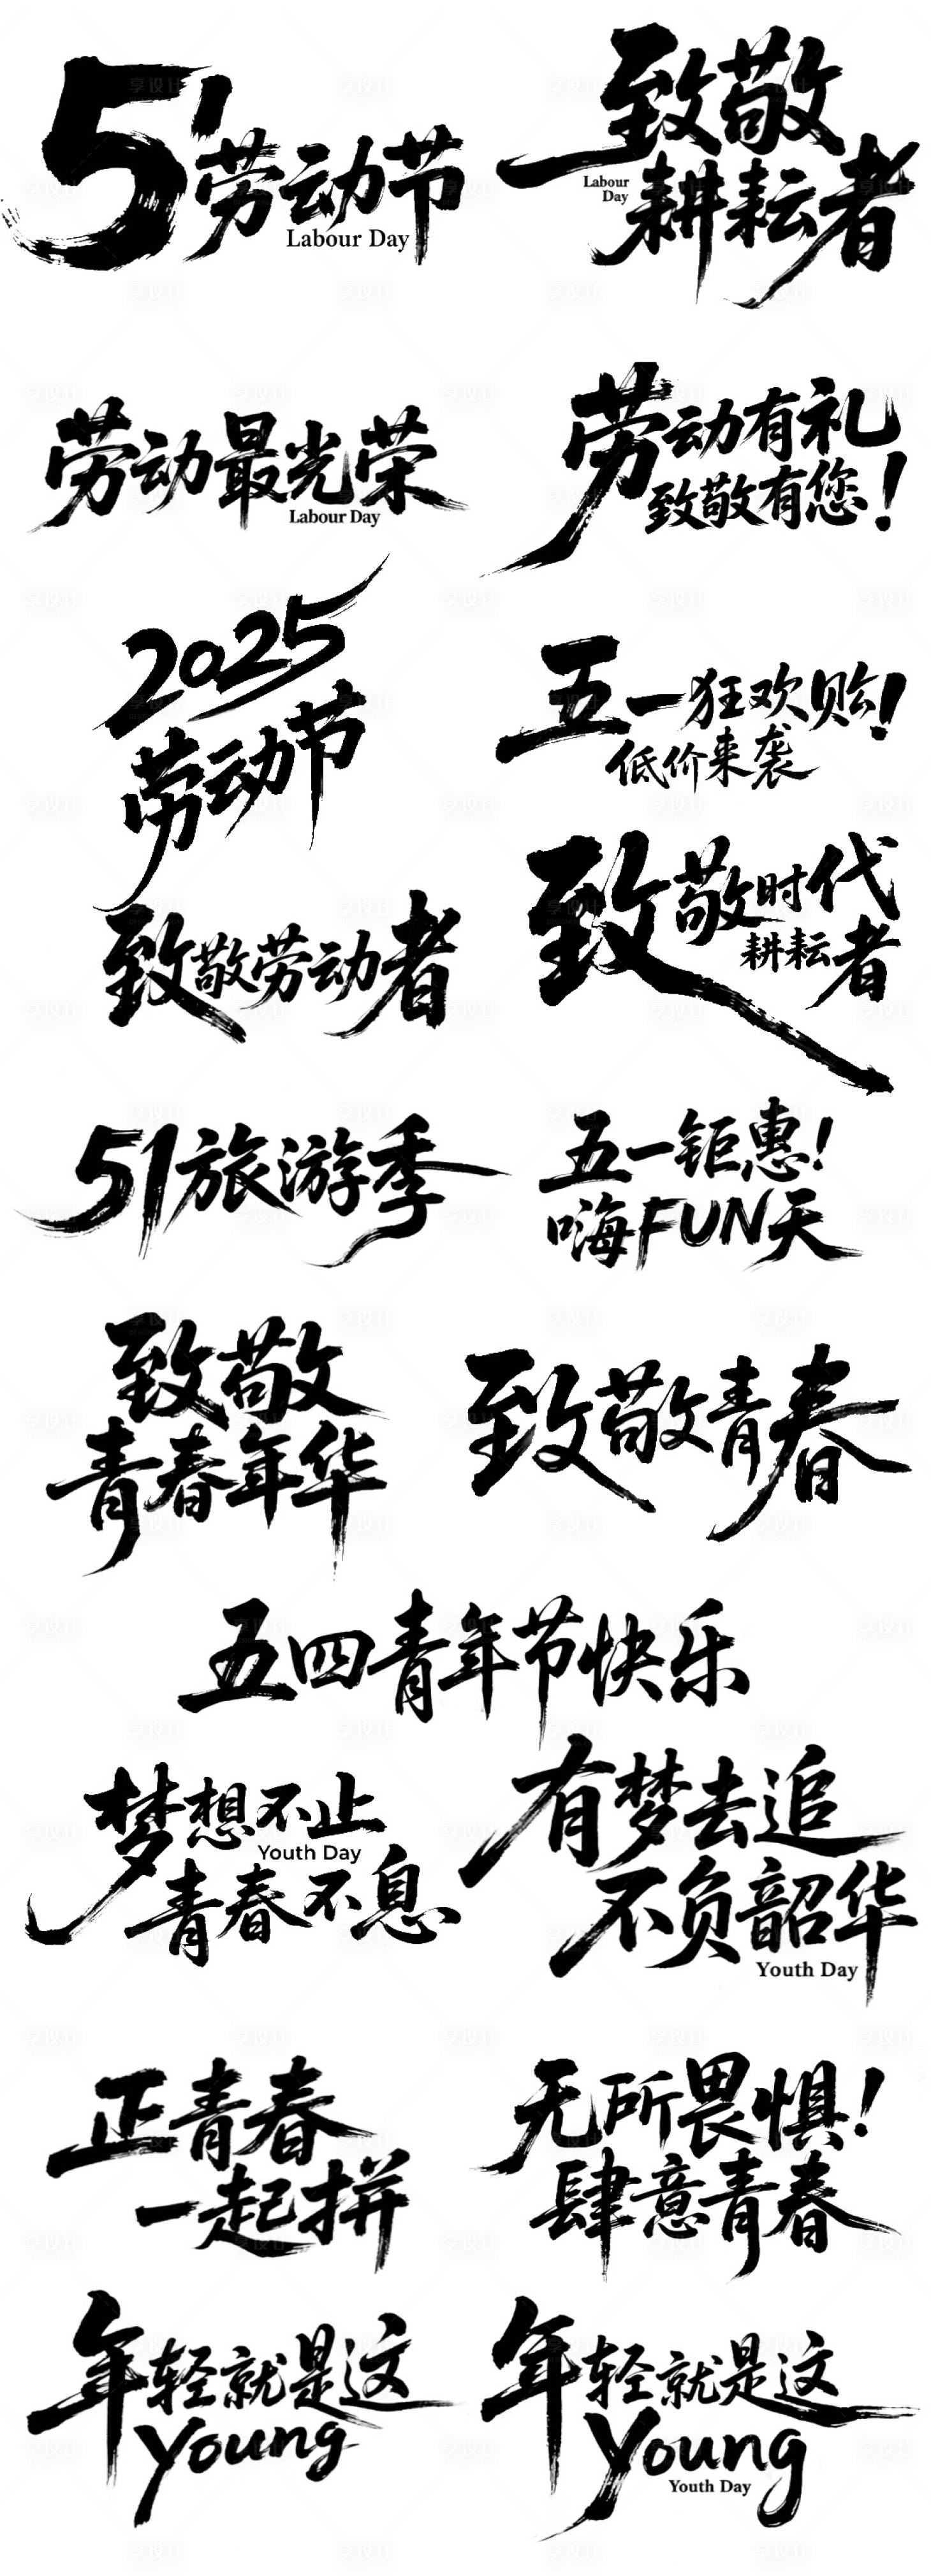 51劳动节
Labour Day
致敬
耕耘者
Labour
Day
劳动最光荣
Labour Day
劳动有礼
致敬有您！
2025
劳动节
五一狂欢购！
低价来袭
致敬劳动者
致敬时代
耕耘者
51旅游季
五一钜惠！
嗨FUN天
致敬
青春年华
致敬青春
五四青年节快乐
梦想不止
Youth Day
青春不息
有梦去追
不负韶华
Youth Day
正青春
一起拼
无所畏惧！
肆意青春
年轻就是这
young
年轻就是这
Young
Youth Day
享设计